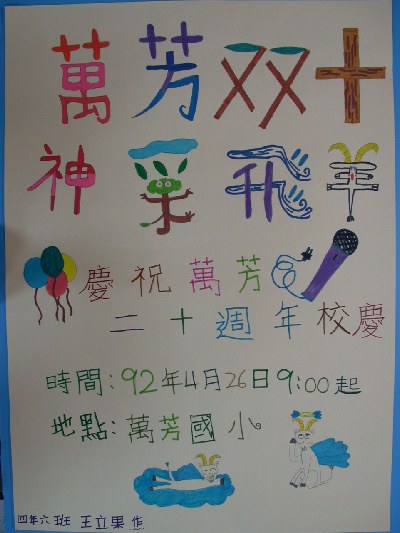 萬芳双十
神采飛羊
慶祝萬芳
二十週年校慶
時間：92年4月26日9:00起
地點：萬芳國小。
四年六班 王立果 作